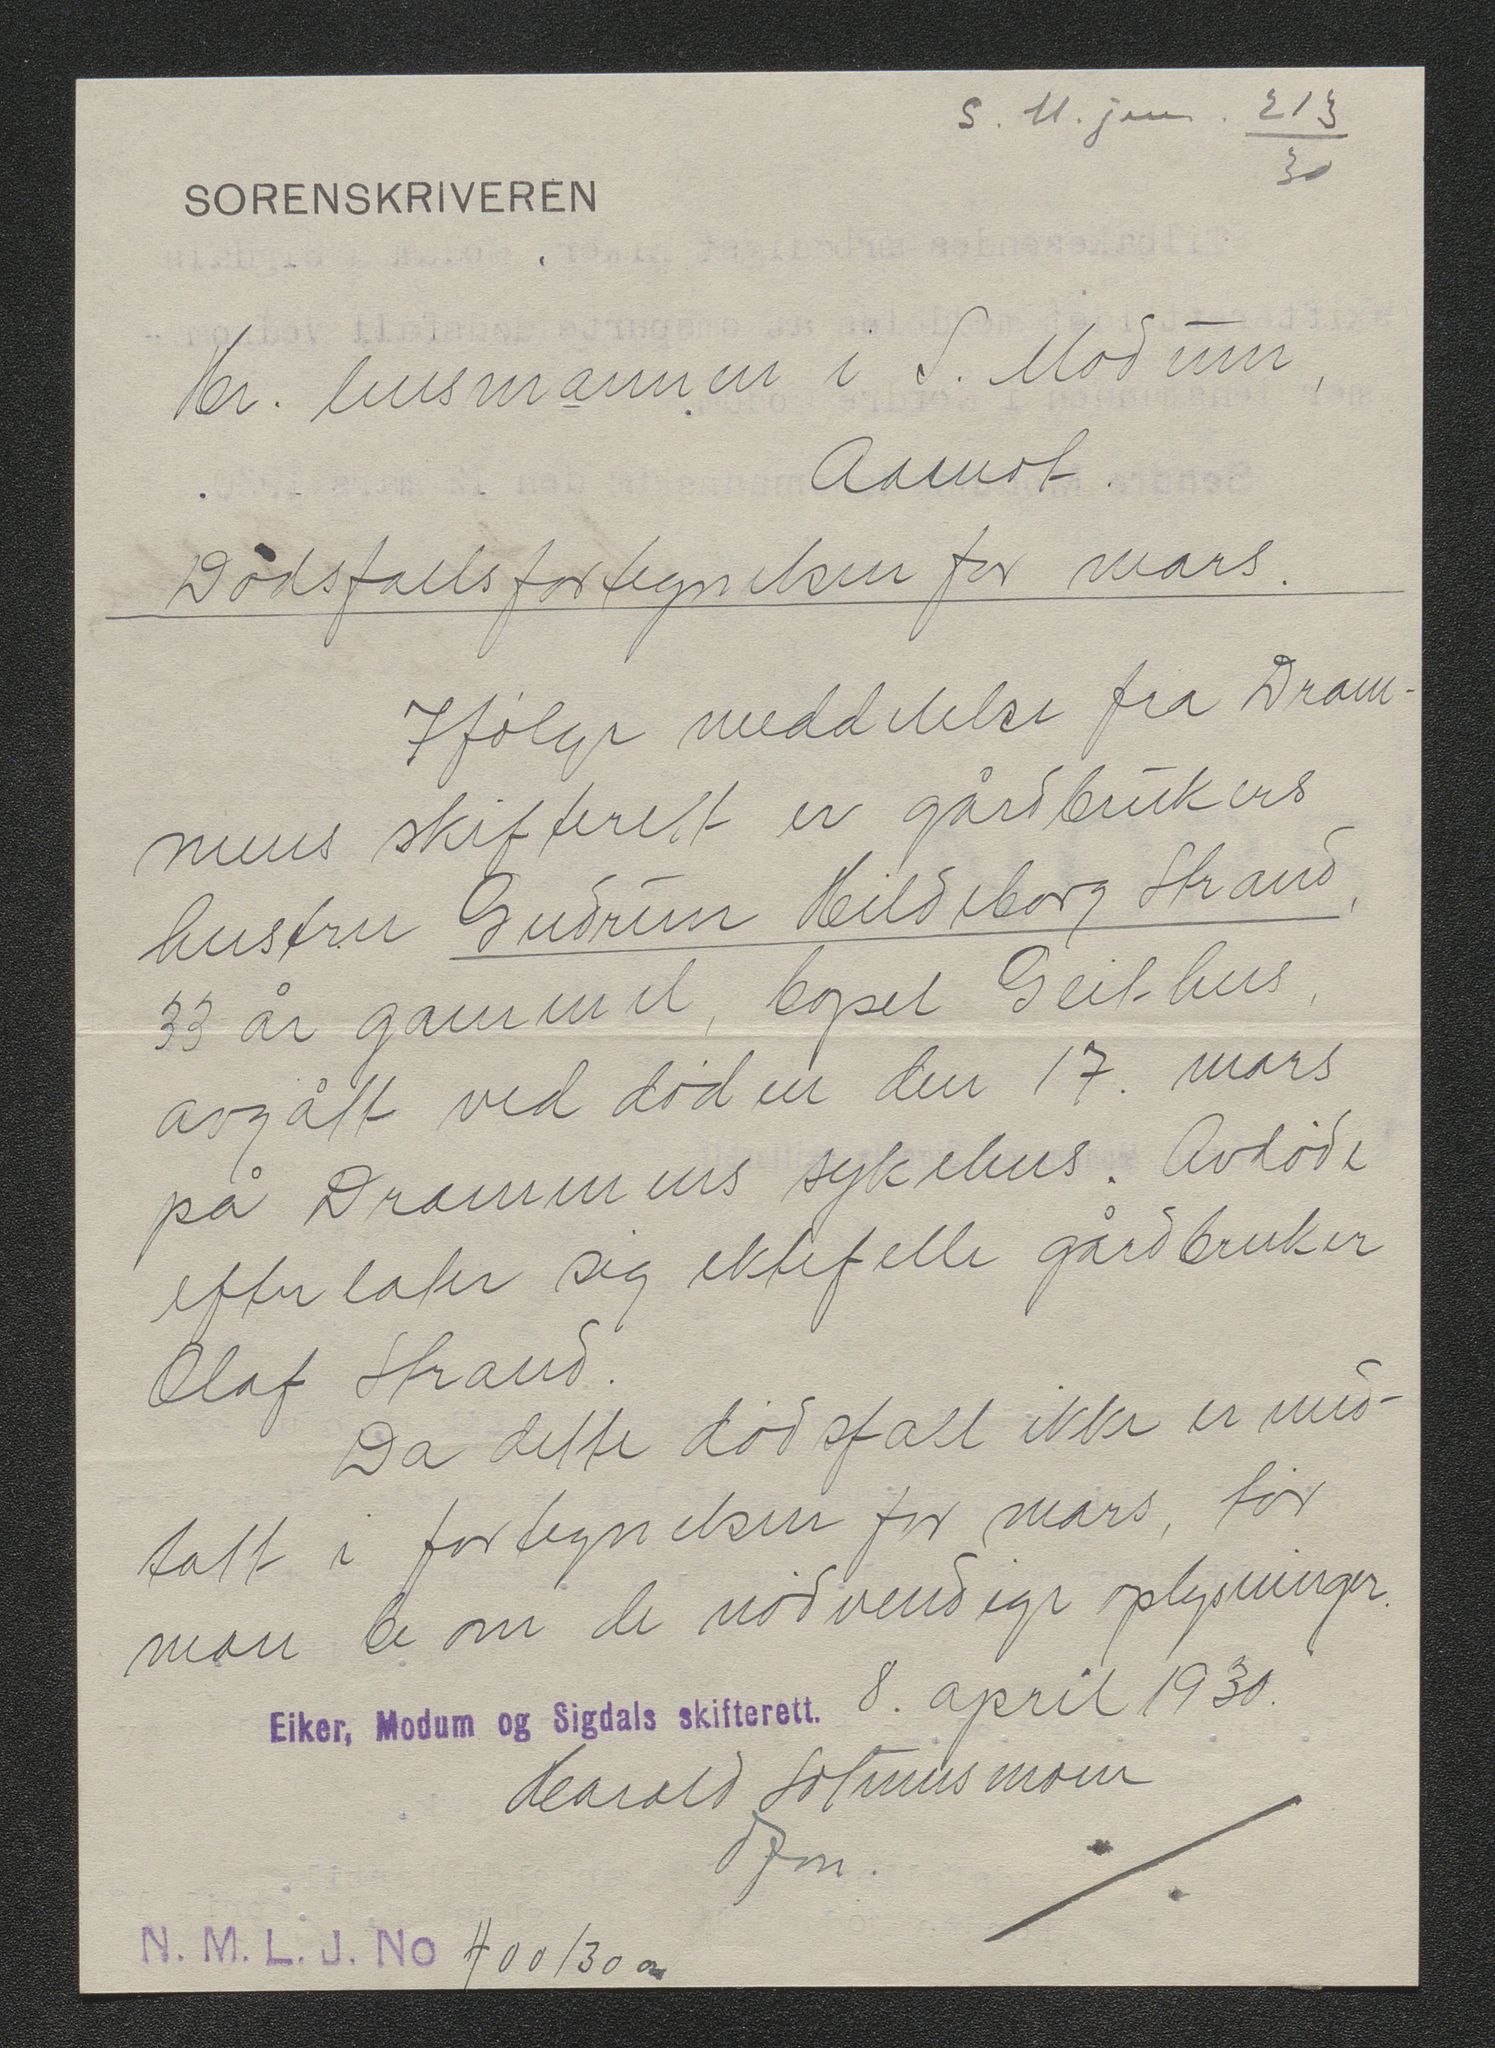 S. M. jnr. 213
30
SORENSKRIVEREN
Hr. lensmannen i S. Modum,
Aamot.
Dødsfallsfortegnelsen for mars.
Ifølge meddelelse fra Dram-
mens skifterett er gårdbrukers
hustru Gudrun Hildeborg Strand,
33 år gammel, bopel Geithus,
avgått ved døden den 17. mars
på Drammens sykehus. Avdøde
efterlater sig ektefelle gårdbruker
Olaf Strand.
Da dette dødsfall ikke er med-
tatt i fortegnelsen for mars, tør
man be om de nødvendige oplysninger.
Eiker, Modum og Sigdals skifterett. 8. april 1930.
Harald
N. M. L. J. No 400/30